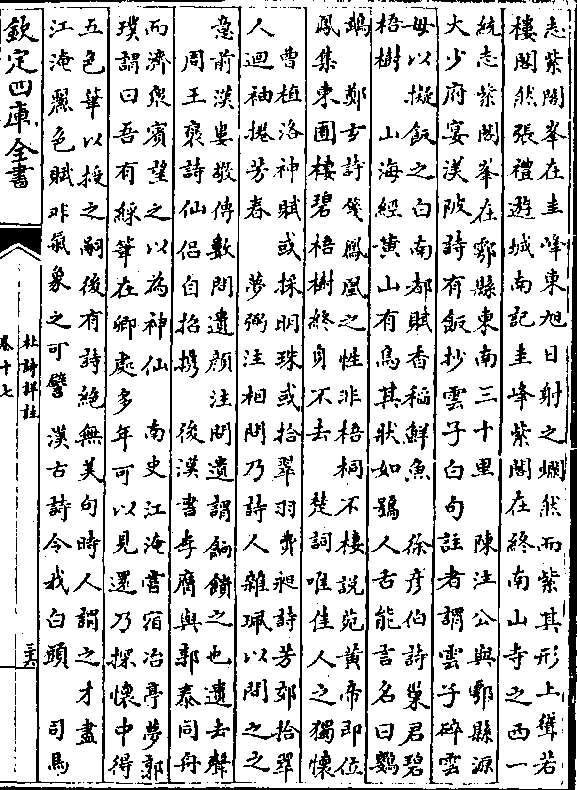 志紫閣峯在圭峰東旭日射之爛然而紫其形上聳若
樓閣然張禮遊城南記圭峰紫閣在終南山寺之西一
統志紫閣峯在鄠縣東南三十里　陳注公與鄠縣源
大少府宴渼陂詩有飯抄雲子白句註者謂雲子碎雲
母以擬飯之白南都賦香稻鮮魚　徐彥伯詩巢君碧
梧樹　山海經黄山有鳥其狀如鴞人舌能言名曰鸚
䳇　鄭玄詩箋鳳凰之性非梧桐不棲說苑黄帝即位
鳳集東囿棲碧梧樹終身不去　楚詞唯佳人之獨懐
　曹植洛神賦或採明珠或拾翠羽費昶詩芳郊拾翠
人迴袖掩芳春　夢弼注相問乃詩人雜珮以問之之
意前漢婁敬傳數問遺顔注問遺謂餉饋之也遺去聲
　周王褒詩仙侣自招攜　後漢書李膺與郭泰同舟
而濟衆賓望之以為神仙　南史江淹嘗宿冶亭夢郭
璞謂曰吾有綵筆在卿處多年可以見還乃探懐中得
五色筆以授之嗣後有詩絶無美句時人謂之才盡
江淹麗色賦非氣象之可譬　漢古詩今我白頭　司馬
欽定四庫全書
杜詩詳註
卷十七
三六